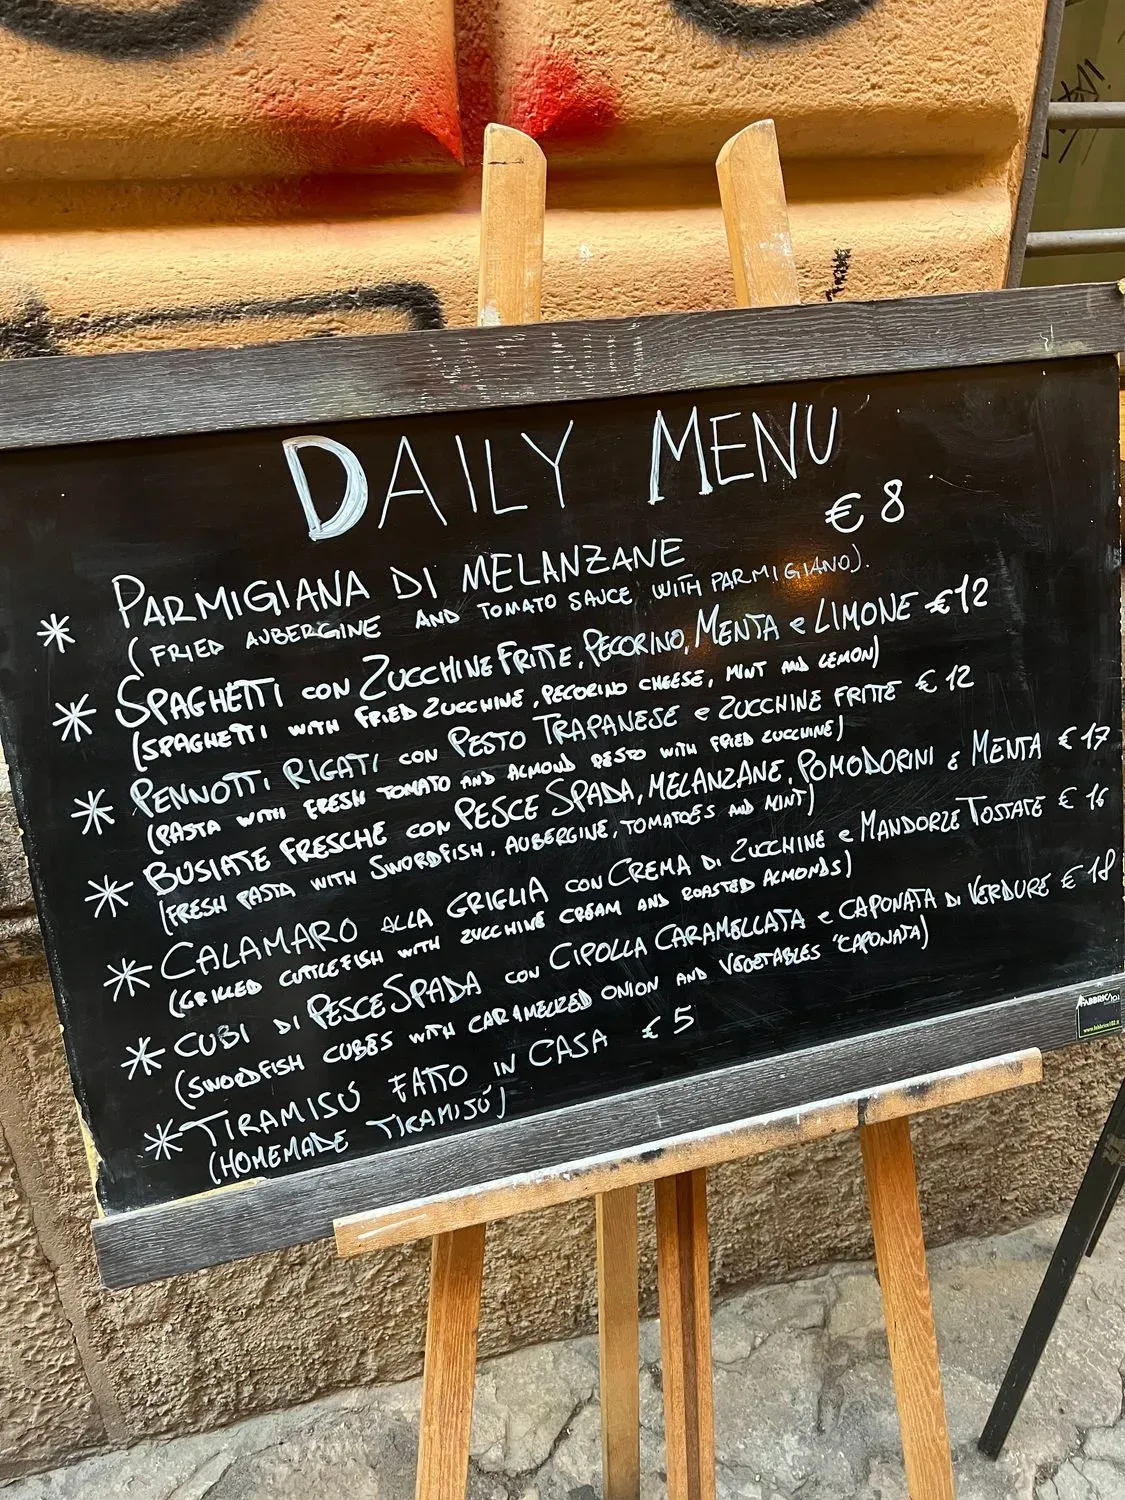 MENU
DAILY MENU
€ 8
* PARMIGIANA DI MELANZANE
(FRIED AUBERGINE AND TOMATO SAUCE WITH PARMIGIANO).
* SPAGHETTI CON ZUCCHINE FRITTE, PECORINO, MENTA e LIMONE €12
(SPAGHETTI WITH FRIED ZUCCHINE, PECORINO CHEESE, MINT AND LEMON)
* PENNOTTI RIGATI CON PESTO TRAPANESE e ZUCCHINE FRITTE €12
(PASTA WITH FRESH TOMATO AND ALMOND PESTO WITH FRIED ZUCCHINE)
* BUSIATE FRESCHE CON PESCE SPADA, MELANZANE, POMODORINI E MENTA €17
(FRESH PASTA WITH SWORDFISH, AUBERGINE, TOMATOES AND MINT)
* CALAMARO ALLA GRIGLIA CON CREMA DI ZUCCHINE e MANDORLE TOSTATE €16
(GRILLED CUTTLEFISH WITH ZUCCHINE CREAM AND ROASTED ALMONDS)
* CUBI DI PESCE SPADA CON CIPOLLA CARAMELLATA e CAPONATA DI VERDURE €18
(SWORDFISH CUBES WITH CARAMELIZED ONION AND VEGETABLES "CAPONATA)
* TIRAMISÚ FATTO IN CASA €5
(HOMEMADE TIRAMISÚ)
FABBRICA102